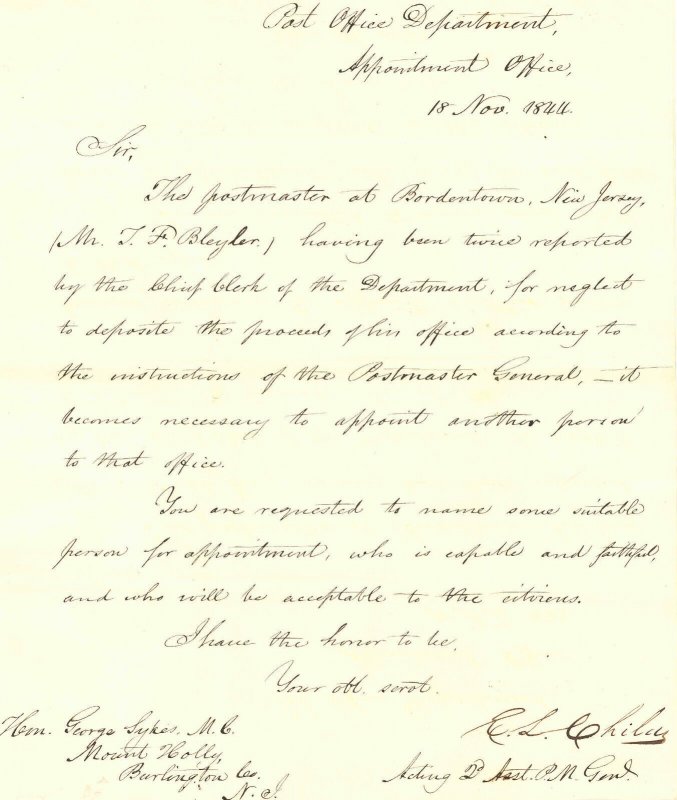 Post Office Department,
Appointment Office,
18 Nov. 1844.
Sir,
The postmaster at Bordentown, New Jersey,
(Mr. T. F. Bleyler.) having been twice reported
by the Chief Clerk of the Department, for neglect
to deposite the proceeds of his office according to
the instructions of the Postmaster General, — it
becomes necessary to appoint another person
to that office.
You are requested to name some suitable
person for appointment, who is capable and faithful,
and who will be acceptable to the citizens.
I have the honor to be,
Your obt. servt.
Hon. George Sykes, M. C.
Mount Holly,
Burlington Co.
N. J.
E. L. Childs
Acting Asst. P. M. Genl.